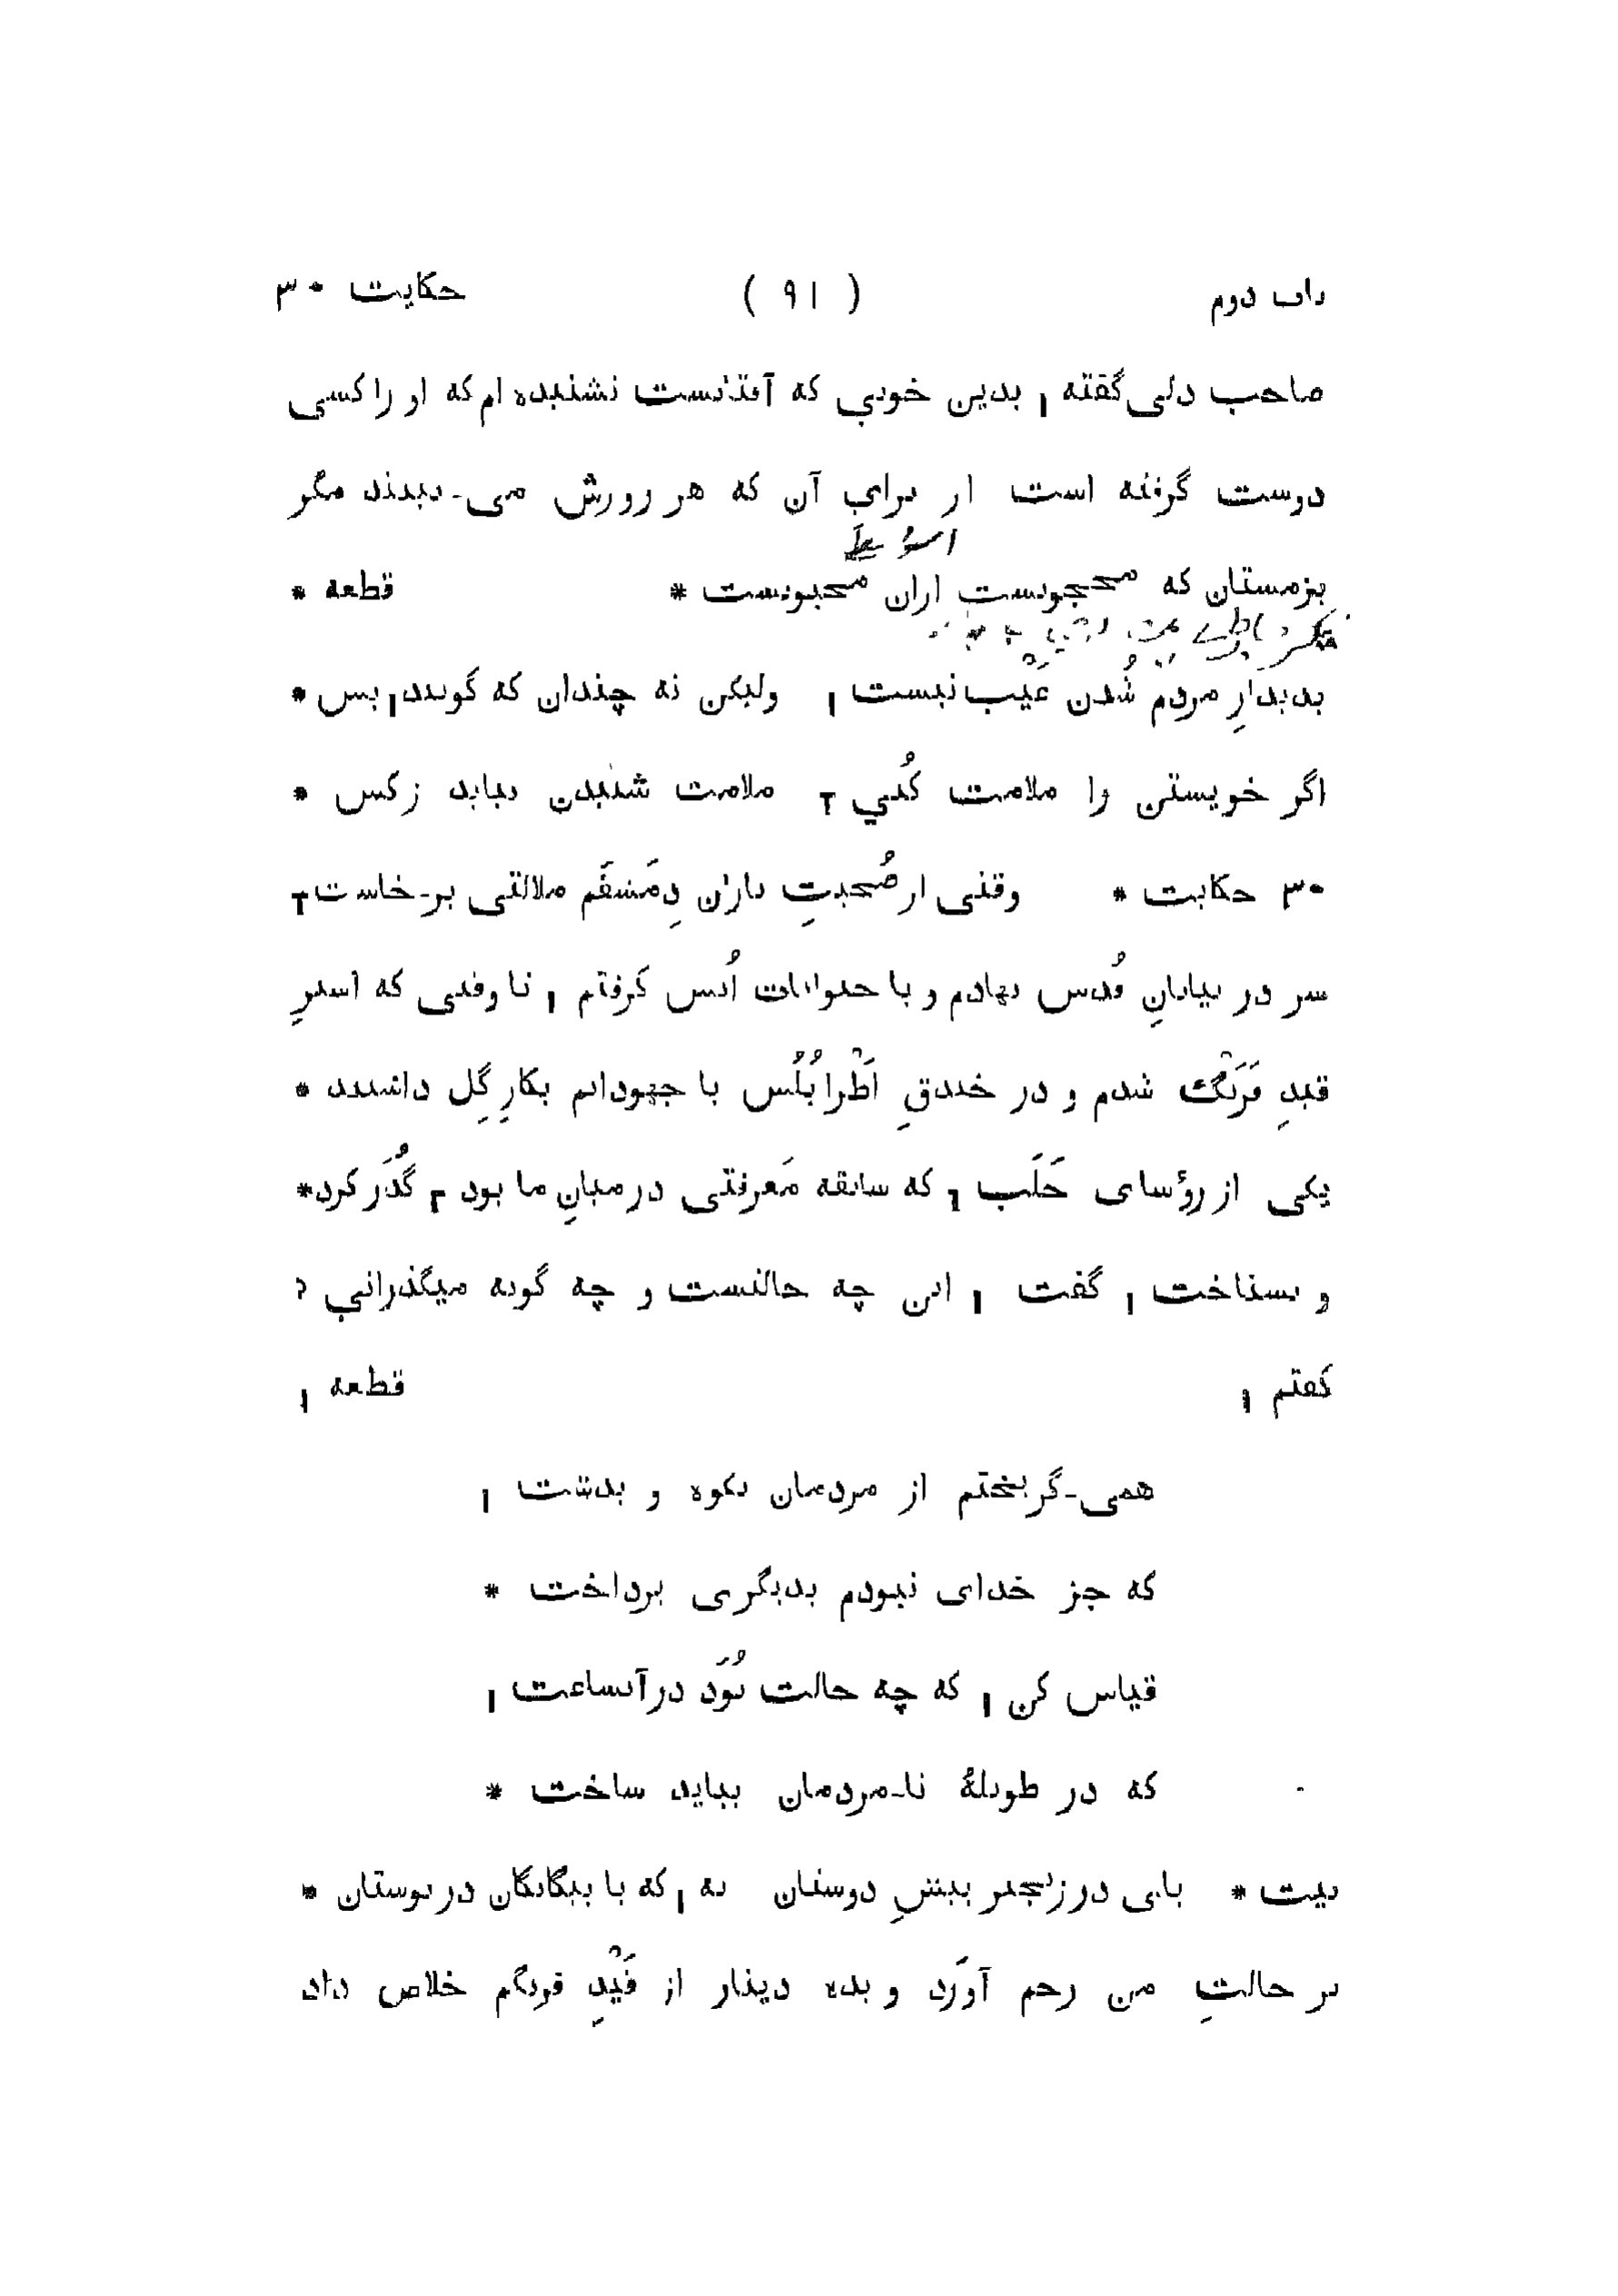 باب دوم ( ۹۱ ) حکایت ۳۰
صاحب دلی گفته ۱ بدین خوبی که آفتابست نشنیده ام که او را کسی
دوست گرفته است از برای آن که هر روزش می-بینند مگر
بزمستان که محجوبست ازان محبوبست * قطعه *
بدیدارِ مردم شُدن عَیْب نیست ۱ ولیکن نه چندان که گویند ۱ بس *
اگر خویستن را ملامت کُني ۲ ملامت شنیدن نباید زکس *
۳۰ حکایت * وقتی از صُحبتِ یاران دِمَشقَم ملالتی بر-خاست ۲
سر در بیابانِ قُدس نهادم و با حیوانات اُنس گرفتم ۱ تا وقتی که اسیرِ
قیدِ فَرَنْگ شدم و در خندقِ اَطْرابُلُس با جهودانم بکارِ گِل داشتند *
یکی از رؤسای حَلَب ۲ که سابقه مَعرفتی درمیانِ ما بود ۲ گُذَر کرد*
و بشناخت ۱ گفت ۱ این چه حالتست و چه گونه میگذرانی ؟
گفتم ۱ قطعه ۱
همی-گریختم از مردمان بکوه و بدشت ۱
که جز خدای نبودم بدیگری پرداخت *
قیاس کن ۱ که چه حالت بُوَد درآنساعت ۱
که در طویلهٔ نا-مردمان بباید ساخت *
بیت * پای درزنجیر پیشِ دوستان به ۱ که با بیگانگان دربوستان *
بر حالتِ من رحم آوَرد و بده دینار از قَیْدِ فرنگم خلاص داد